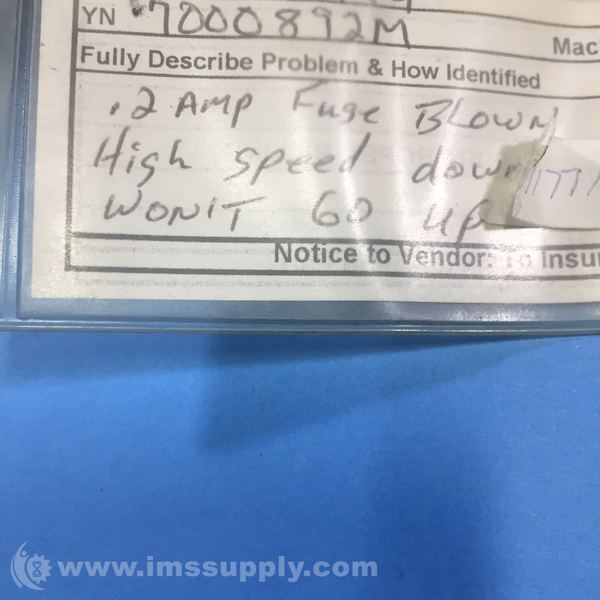 YN 7000892M
Mac
Fully Describe Problem & How Identified
.2 AMP Fuse Blown
High speed down
WON'T GO up
1177
Notice to Vendor: To Insu
www.imssupply.com